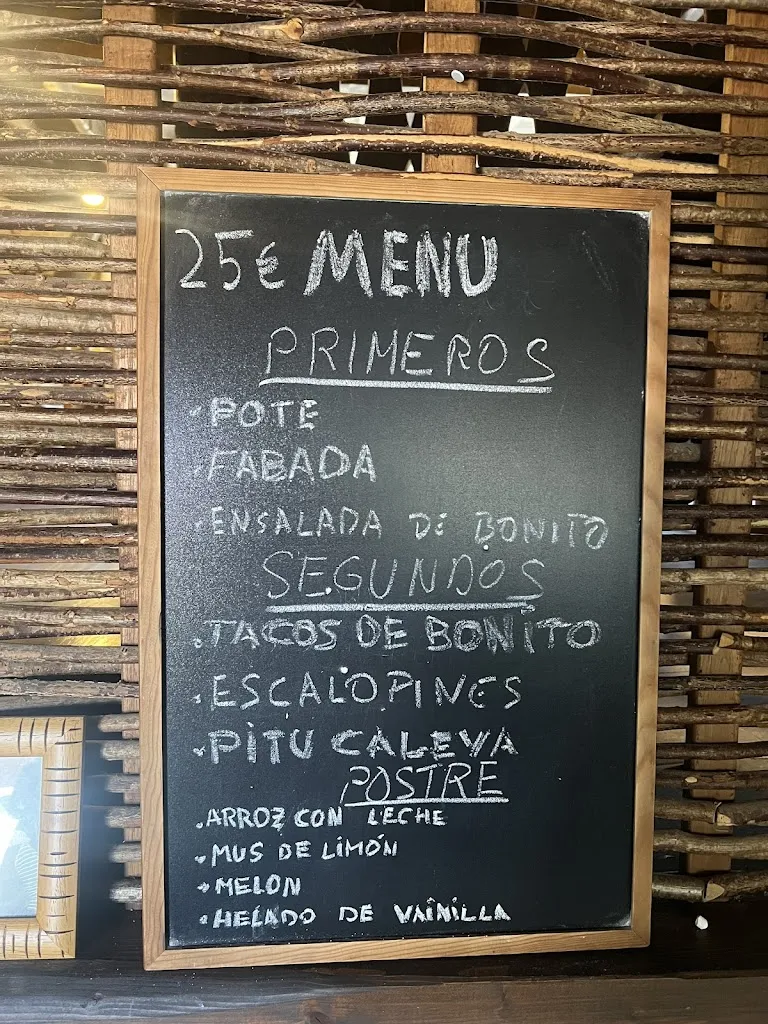 25€ MENU
PRIMEROS
·POTE
·FABADA
·ENSALADA DE BONITO
SEGUNDOS
·TACOS DE BONITO
·ESCALOPINES
·PITU CALEYA
POSTRE
·ARROZ CON LECHE
·MUS DE LIMÓN
·MELON
·HELADO DE VAINILLA